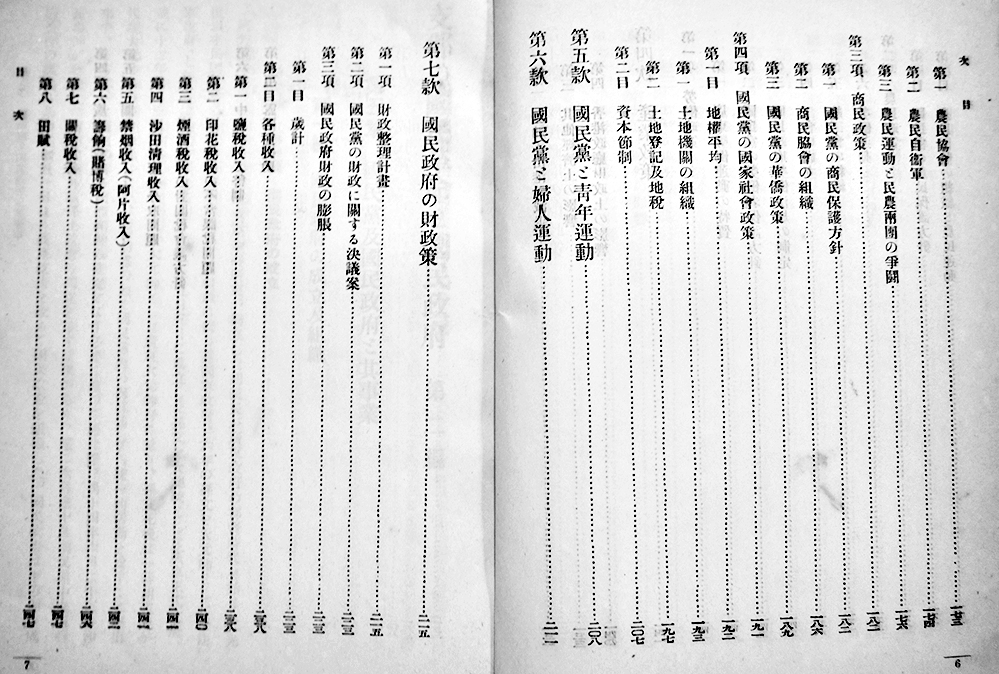 目次
第一 農民協會 一七三
第二 農民自衞軍 一七四
第三 農民運動と民農兩團の爭鬪 一七六
第三項 商民政策 一八二
第一 國民黨の商民保護方針 一八二
第二 商民協會の組織 一八六
第三 國民黨の華僑政策 一八九
第四項 國民黨の國家社會政策 一九一
第一目 地權平均 一九二
第一 土地機關の組織 一九三
第二 土地登記及地稅 一九七
第二目 資本節制 二〇七
第五款 國民黨と靑年運動 二〇八
第六款 國民黨と婦人運動 二一一
6
第七款 國民政府の財政策 二一五
第一項 財政整理計畫 二一五
第二項 國民黨の財政に關する決議案 二三三
第三項 國民政府財政の膨脹 二三三
第一目 歲計 二三三
第二目 各種收入 二三八
第一 鹽稅收入 二三八
第二 印花稅收入 二四〇
第三 煙酒稅收入 二四一
第四 沙田淸理收入 二四一
第五 禁烟收入(阿片收入) 二四二
第六 籌餉(賭博稅) 二四六
第七 關稅收入 二四七
第八 田賦 二四七
目次
7